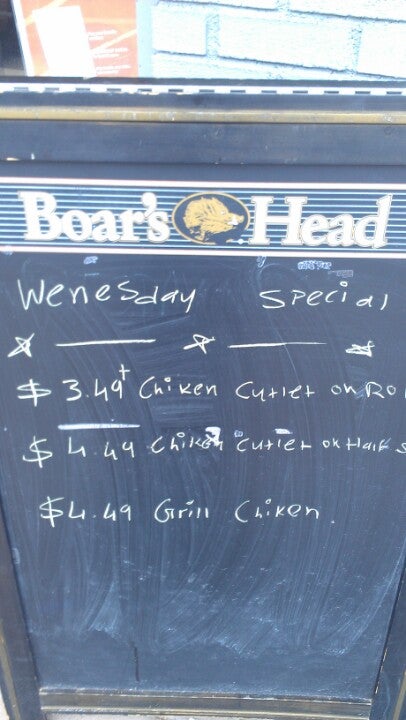 Boar's Head
Wenesday Special
$3.49+ Chiken Cutlet on Ro
$4.49 Chiken Cutlet on Half S
$4.49 Grill Chiken